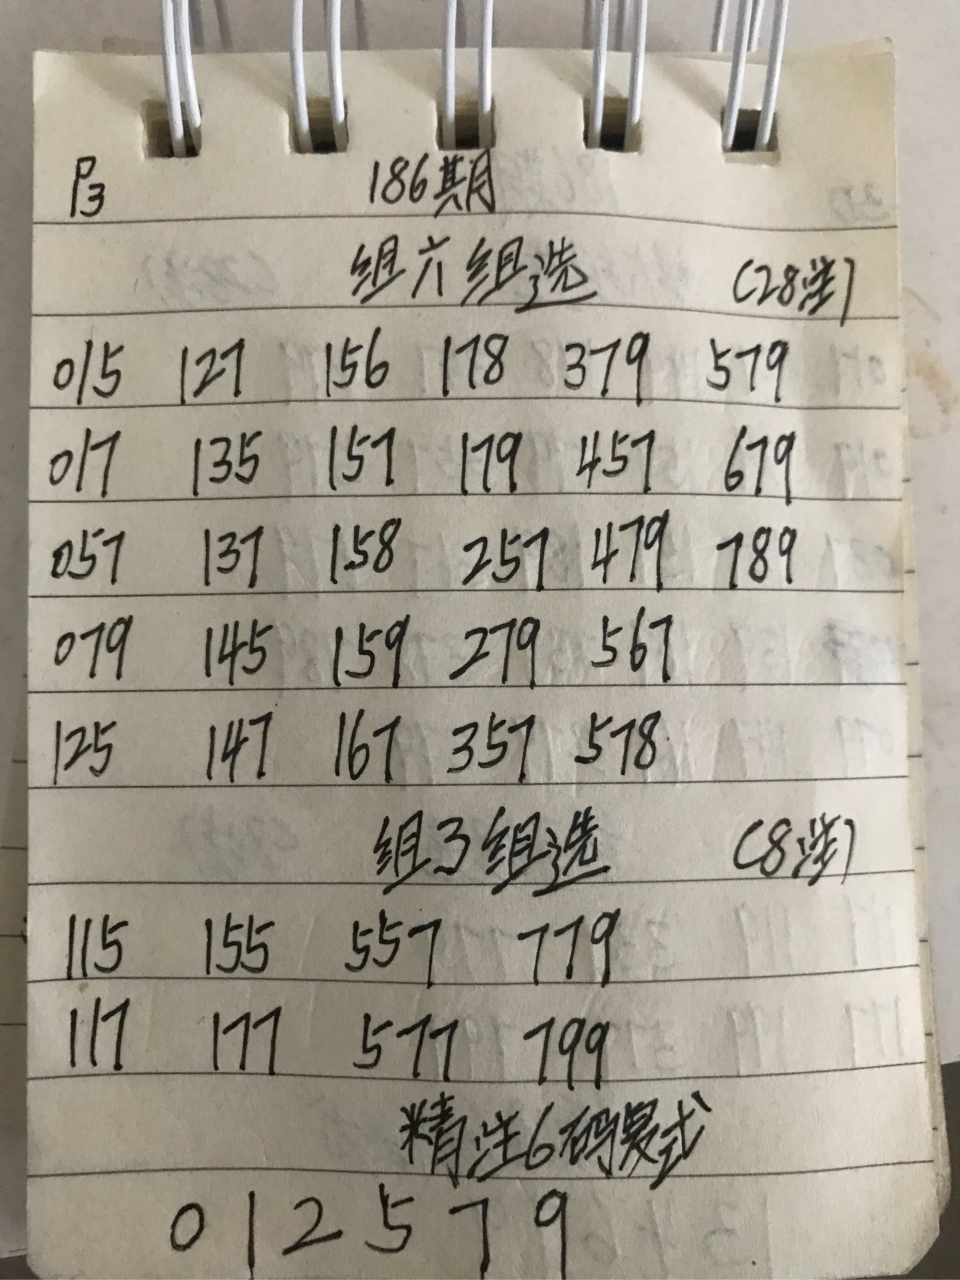 P3 186期
组六组选 (28注)
015 127 156 178 379 579
017 135 157 179 457 679
057 137 158 257 479 789
079 145 159 279 567
125 147 167 357 578
组3组选 (8注)
115 155 557 779
117 177 577 799
精注6码复式
0 1 2 5 7 9